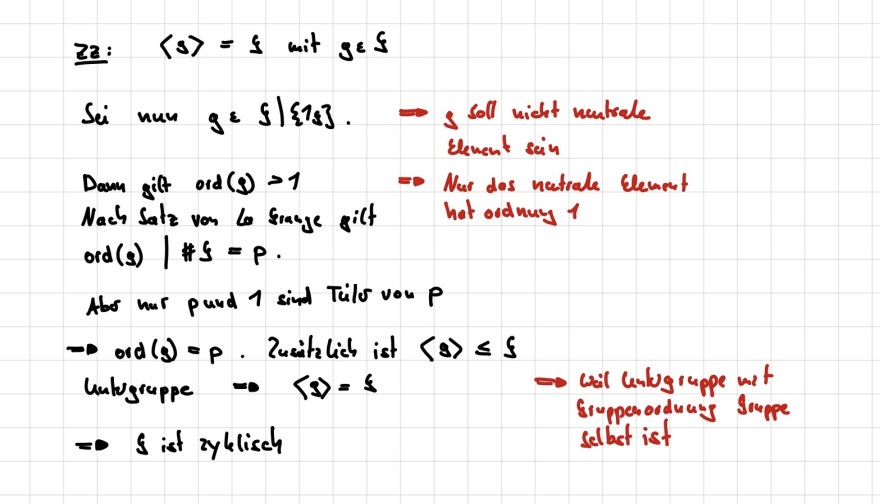 ZZ: ⟨g⟩ = G mit g ε G
Sei nun g ε G\{1G}. ⇒ g soll nicht neutrale
Element sein
Dann gilt ord(g) > 1 ⇒ Nur das neutrale Element
Nach Satz von La Grange gilt hat ordnung 1
ord(g) | #G = p.
Aber nur p und 1 sind Teiler von p
⇒ ord(g) = p. Zusätzlich ist ⟨g⟩ ≤ G
Untergruppe ⇒ ⟨g⟩ = G ⇒ Weil Untergruppe mit
Gruppenordnung Gruppe
selbst ist
⇒ G ist zyklisch